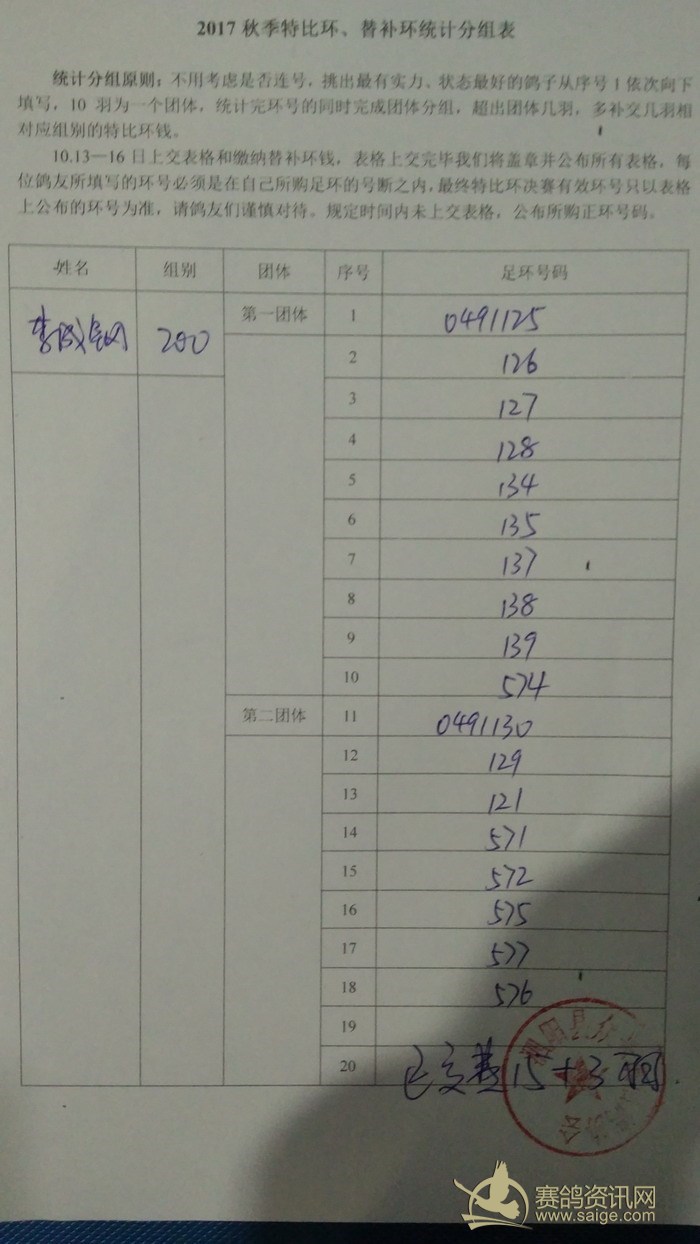 2017 秋季特比环、替补环统计分组表
统计分组原则：不用考虑是否连号，挑出最有实力、状态最好的鸽子从序号 1 依次向下
填写，10 羽为一个团体，统计完环号的同时完成团体分组，超出团体几羽，多补交几羽相
对应组别的特比环钱。
10.13—16 日上交表格和缴纳替补环钱，表格上交完毕我们将盖章并公布所有表格，每
位鸽友所填写的环号必须是在自己所购足环的号断之内，最终特比环决赛有效环号只以表格
上公布的环号为准，请鸽友们谨慎对待。规定时间内未上交表格，公布所购正环号码。
姓名 组别 团体 序号 足环号码
李 200 第一团体 1 0491125
2 126
3 127
4 128
5 134
6 135
7 137
8 138
9 139
10 574
第二团体 11 0491130
12 129
13 121
14 571
15 572
16 575
17 577
18 576
19
20 交 15+3 羽
赛鸽资讯网
www.saige.com